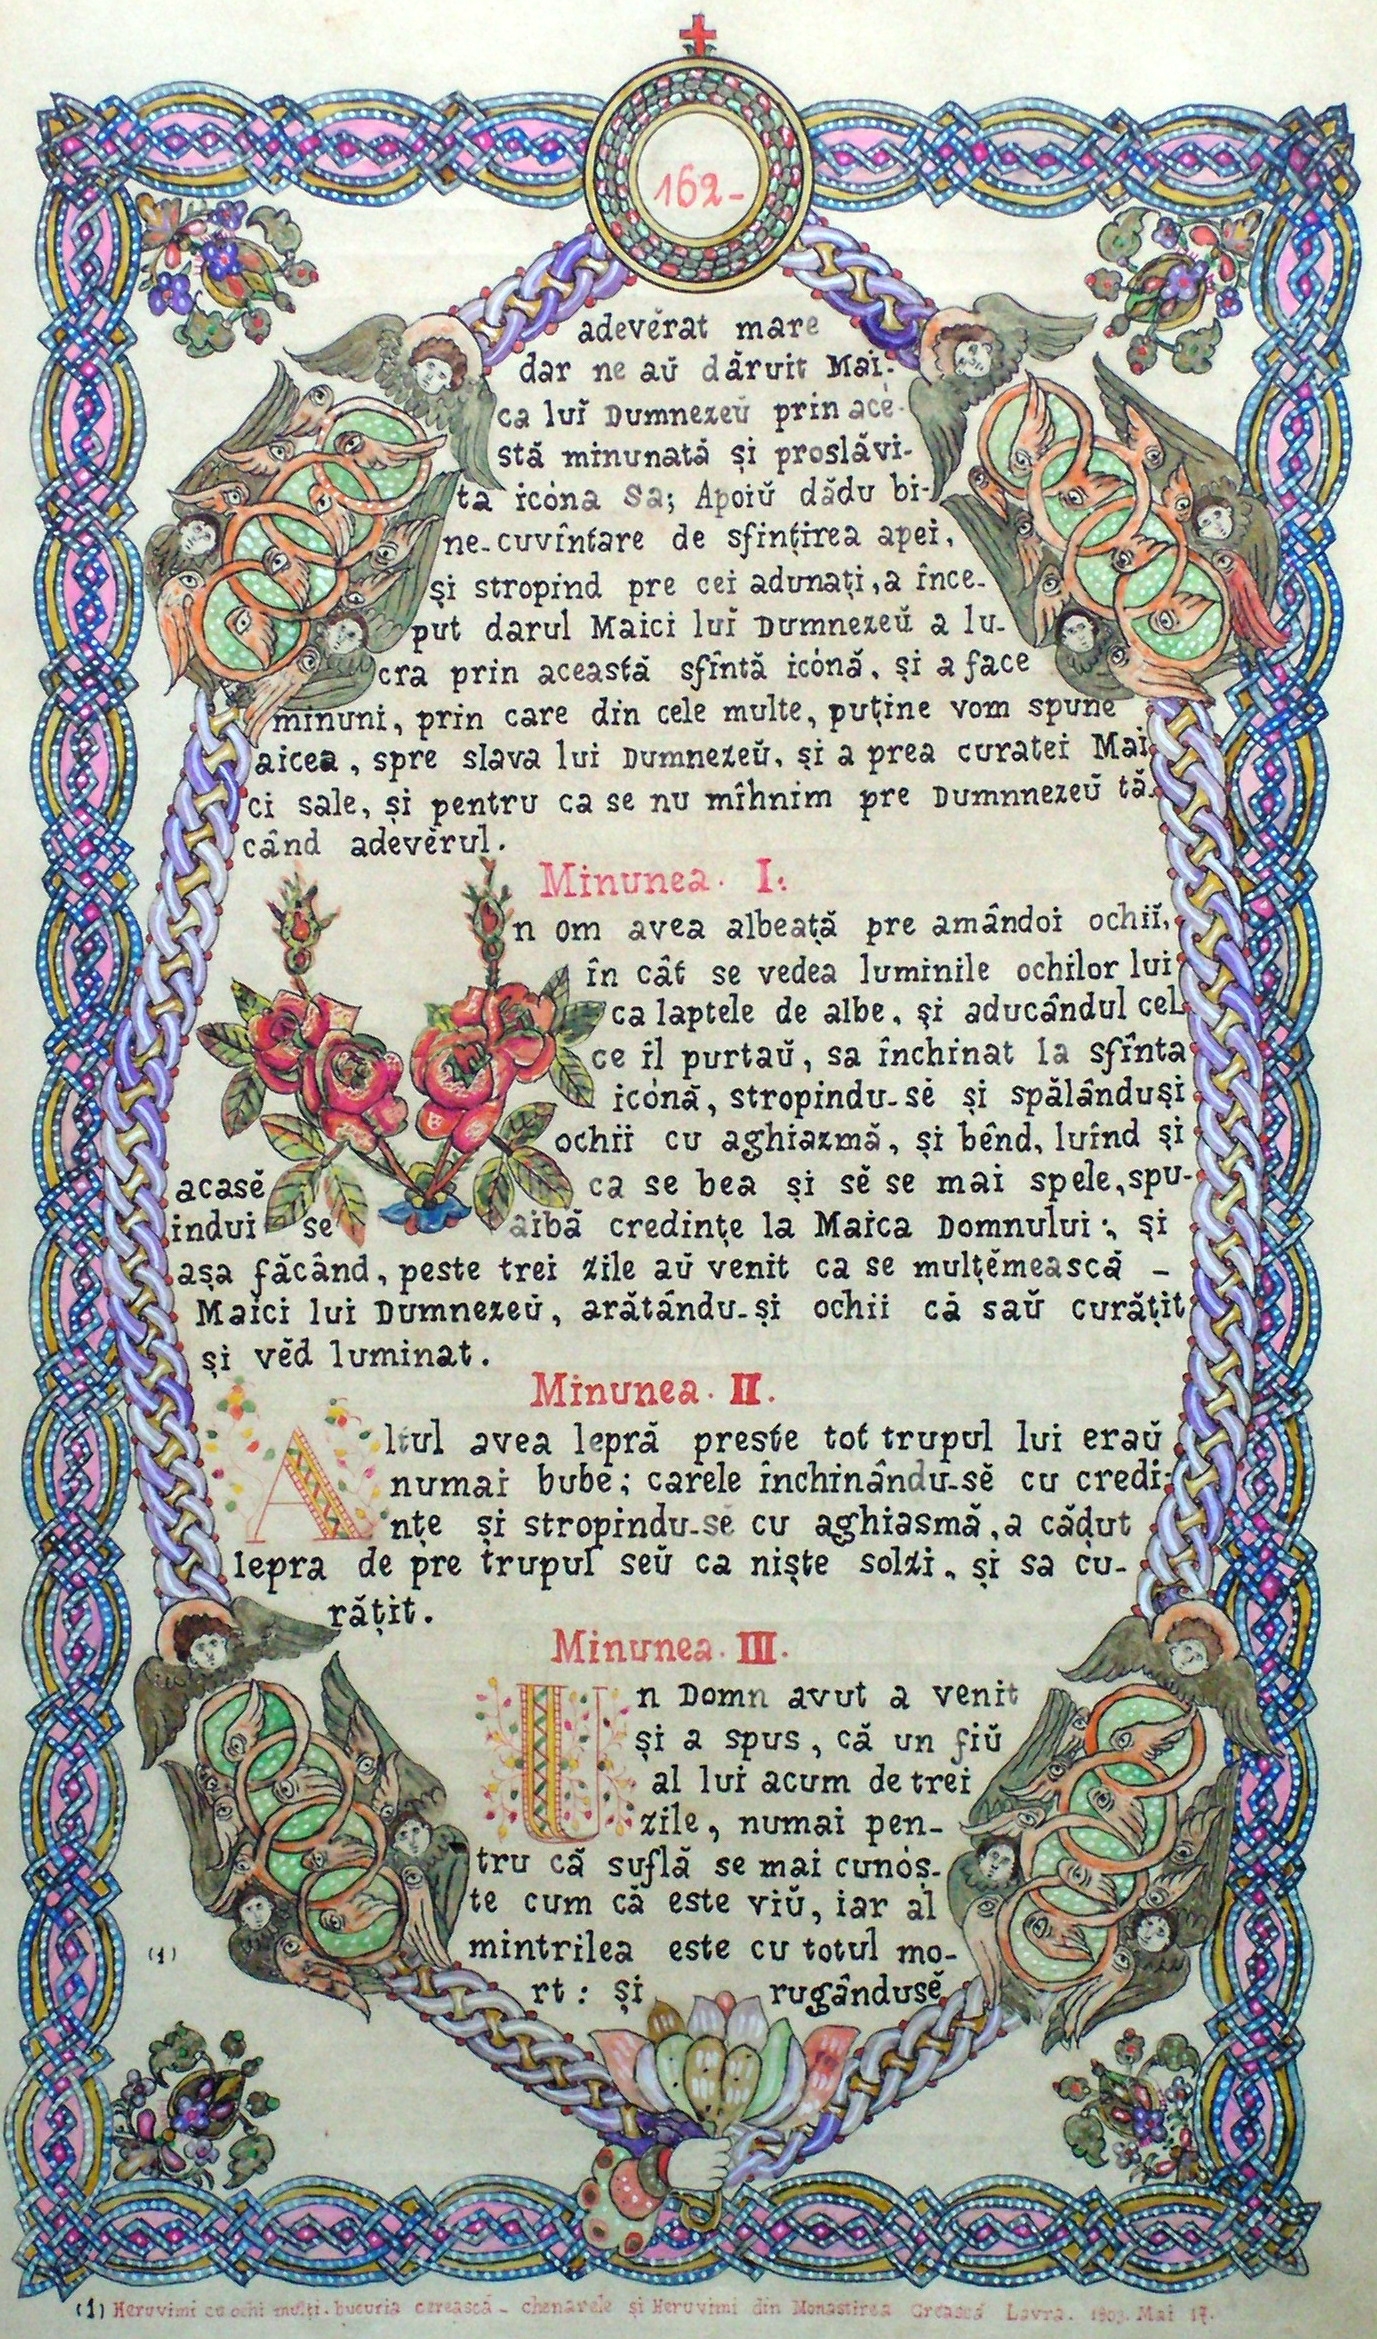 162-
adevĕrat mare
dar ne aŭ dăruit Mai-
ca luĭ Dumnezeŭ prin ace-
stă minunată și proslăvi-
ta icóna Sa; Apoiŭ dădu bi-
ne-cuvîntare de sfințirea apei,
și stropind pre cei adunați, a înce-
put darul Maici luĭ Dumnezeŭ a lu-
cra prin această sfîntă icónă, și a face
minuni, prin care din cele multe, puține vom spune
aicea, spre slava lui Dumnezeŭ, și a prea curatei Mai
ci sale, și pentru ca se nu mîhnim pre Dumnnezeŭ tă-
când adevĕrul.
Minunea. I.
n om avea albeață pre amândoi ochiĭ,
în cât se vedea luminile ochilor lui
ca laptele de albe, și aducândul cel
ce îl purtaŭ, sa închinat la sfînta
icónă, stropindu-sĕ și spălânduși
ochii cu aghiazmă, și bênd, luînd și
acasĕ ca se bea și sĕ se mai spele, spu-
indui se aibă credințe la Maica Domnului; și
așa făcând, peste trei zile aŭ venit ca se mulțĕmească -
Maici lui Dumnezeŭ, arătându-și ochii că saŭ curățit
și vĕd luminat.
Minunea. II.
Altul avea lepră preste tot trupul lui eraŭ
numai bube; carele închinându-sĕ cu credi-
nțe și stropindu-sĕ cu aghiasmă, a cădut
lepra de pre trupul seŭ ca niște solzi, și sa cu-
rățit.
Minunea. III.
Un Domn avut a venit
și a spus, că un fiŭ
al lui acum de trei
zile, numai pen-
tru că suflă se mai cunós-
te cum că este viŭ, iar al
mintrilea este cu totul mo-
rt: și rugândusĕ
(1)
(1) Heruvimi cu ochi mulți. bucuria cerească - chenarele și Heruvimi din Monastirea Grească Lavra. 1903. Mai 17.